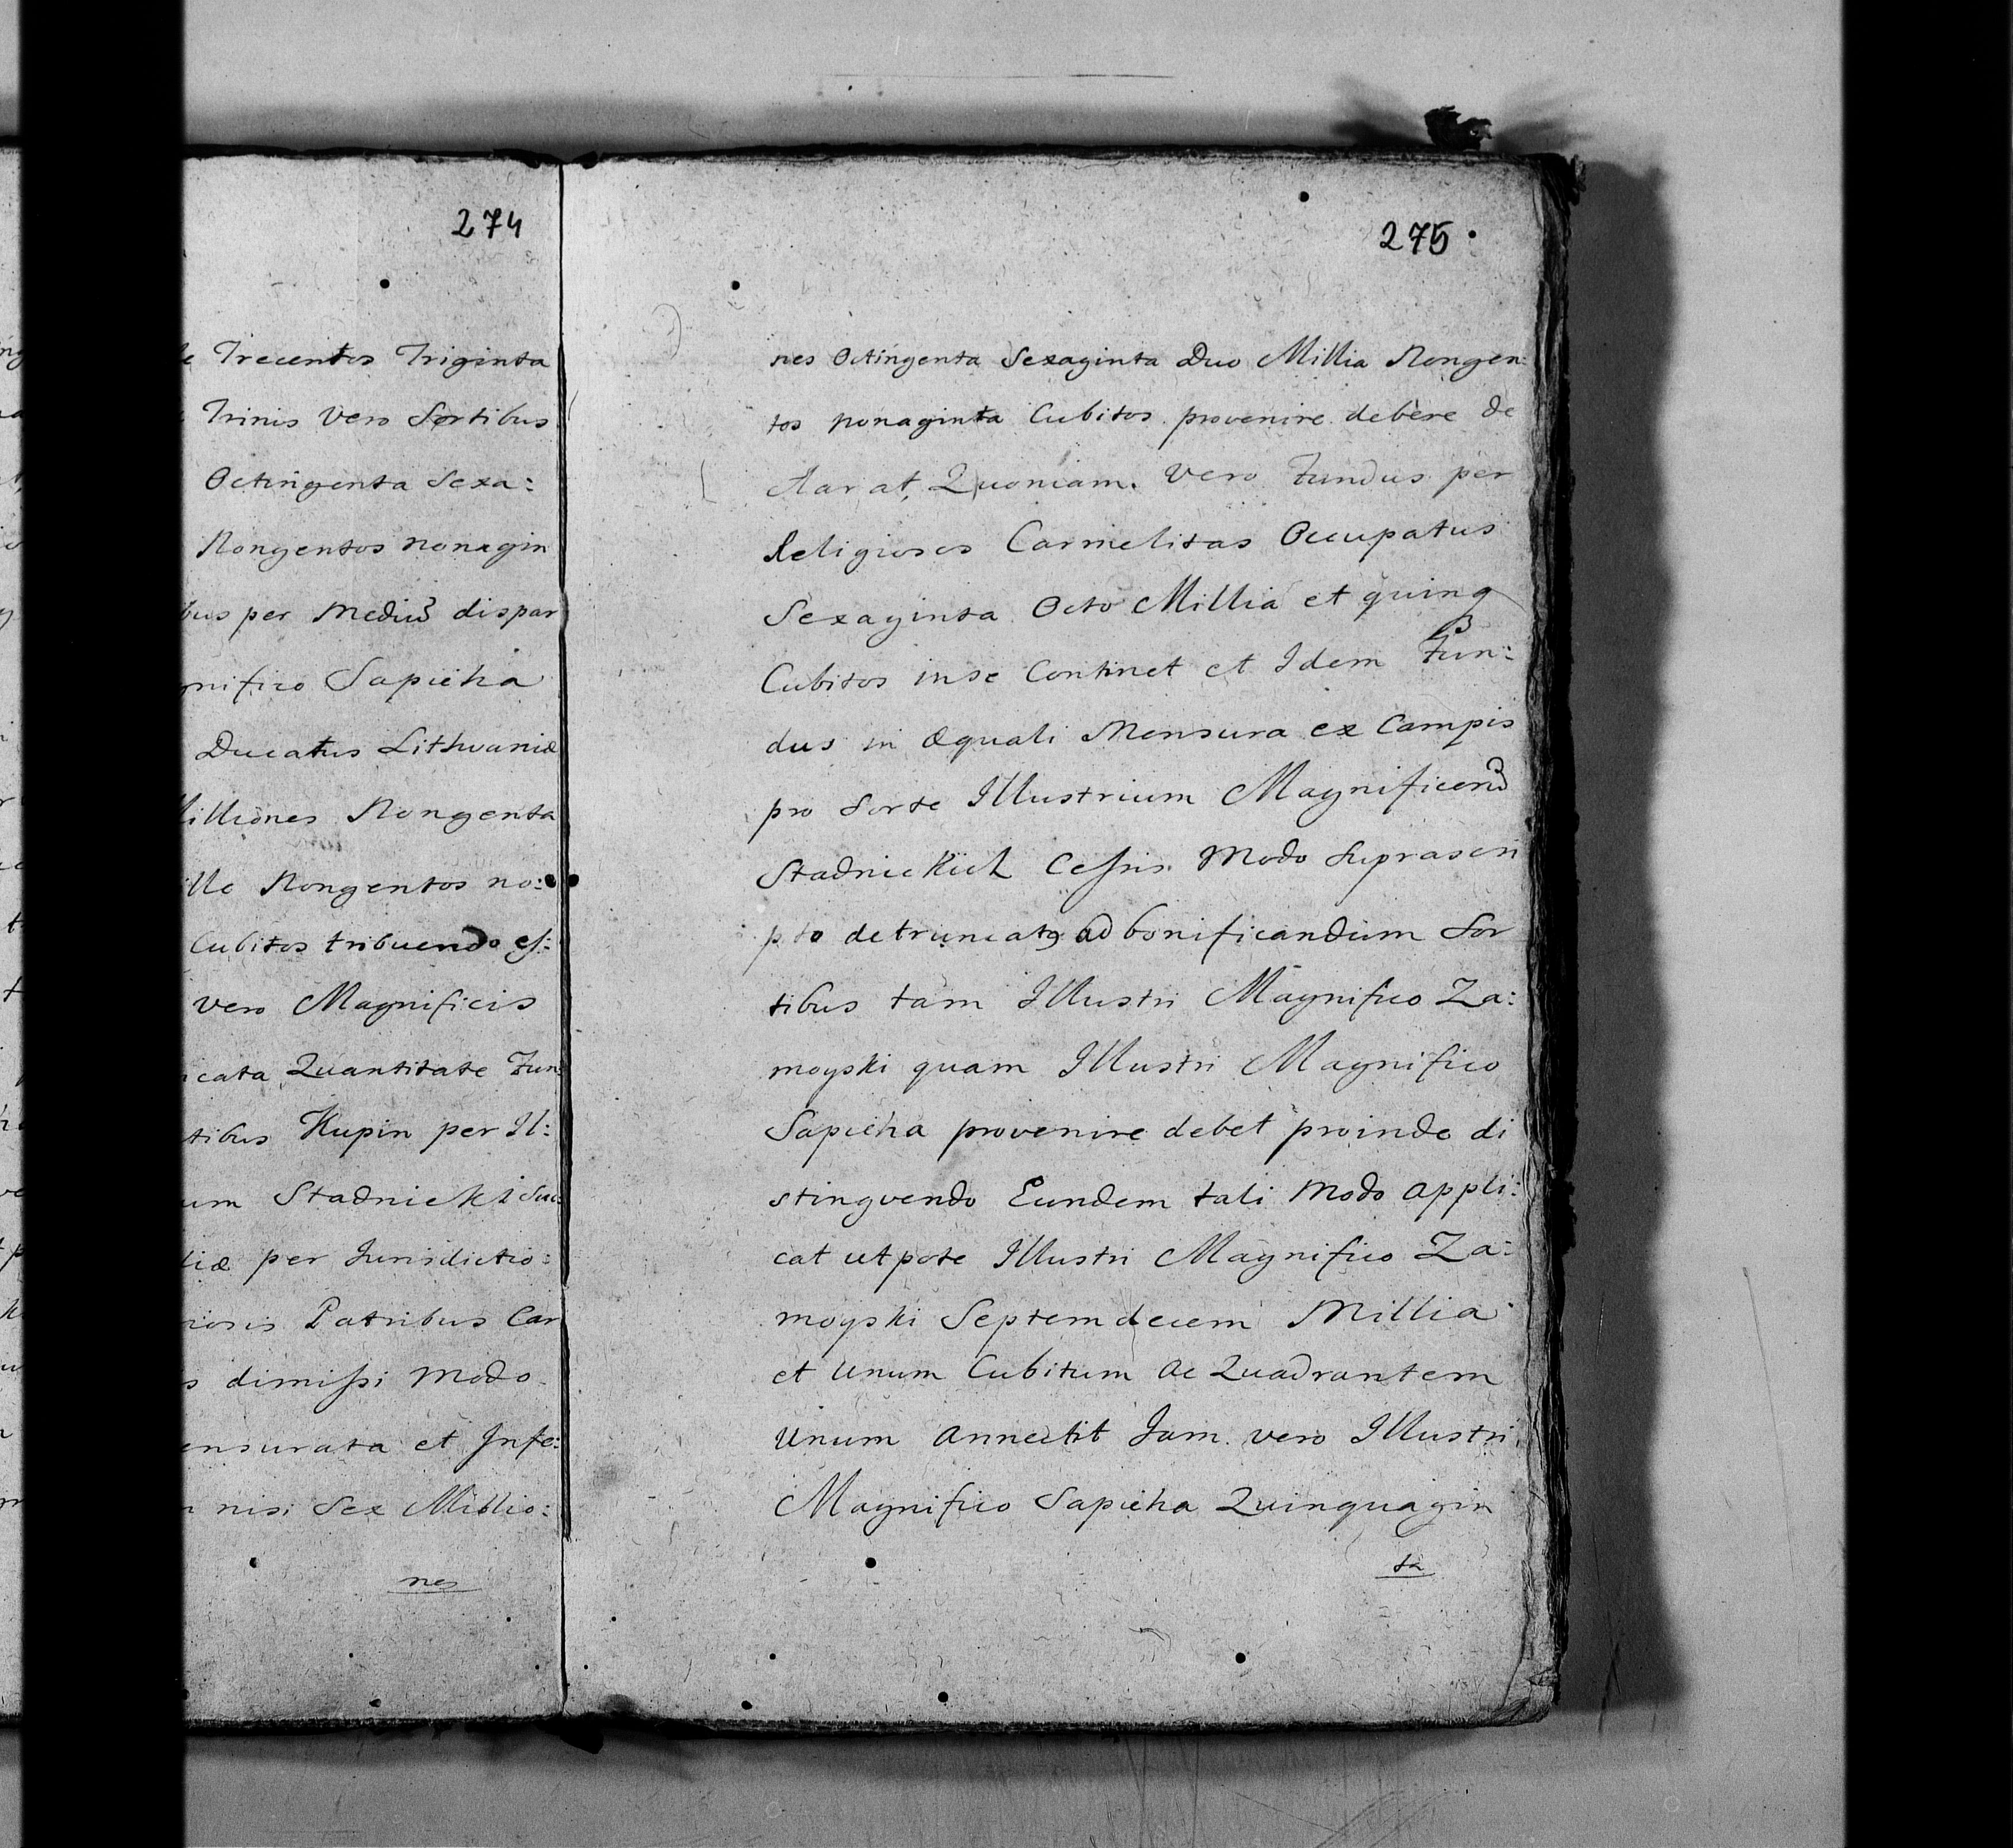 274
Trecentos Triginta
Trinis Vero Sortibus
Octingenta Sexa:
Nongentos nonagin
bus per Mediū dispar
gnifico Sapieha
Ducatus Lithvaniæ
illiones Nongenta
ille Nongentos no:
Cubitos tribuendo es:
vero Magnificis
icata Quantitate Fun:
tibus Kupin per Il:
um Stadnicki Suc:
liæ per Jurisdictio:
iosis Patribus Car
s dimissi Modo
ensurata et Infe:
nisi Sex Millio:
nes
275
nes Octingenta Sexaginta Duo Millia Nongen:
tos nonaginta Cubitos provenire debere de
clarat, Quoniam vero Fundus per
Religiosos Carmelitas Occupatus
Sexaginta Octo Millia et quinq
Cubitos in se Continet et Idem Fun:
dus in æquali Mensura ex Campis
pro Sorte Illustrium Magnificorū
Stadnickich Cessis Modo Suprascri
pto detruncatq ad bonificandum Sor
tibus tam Illustri Magnifico Za:
moyski quam Illustri Magnifico
Sapieha provenire debet proinde di
stinguendo Eundem tali Modo appli:
cat utpote Illustri Magnifico Za:
moyski Septemdecem Millia
et Unum Cubitum ac Quadrantem
Unum annectit Jam vero Illustri
Magnifico Sapieha Quinquagin
ta